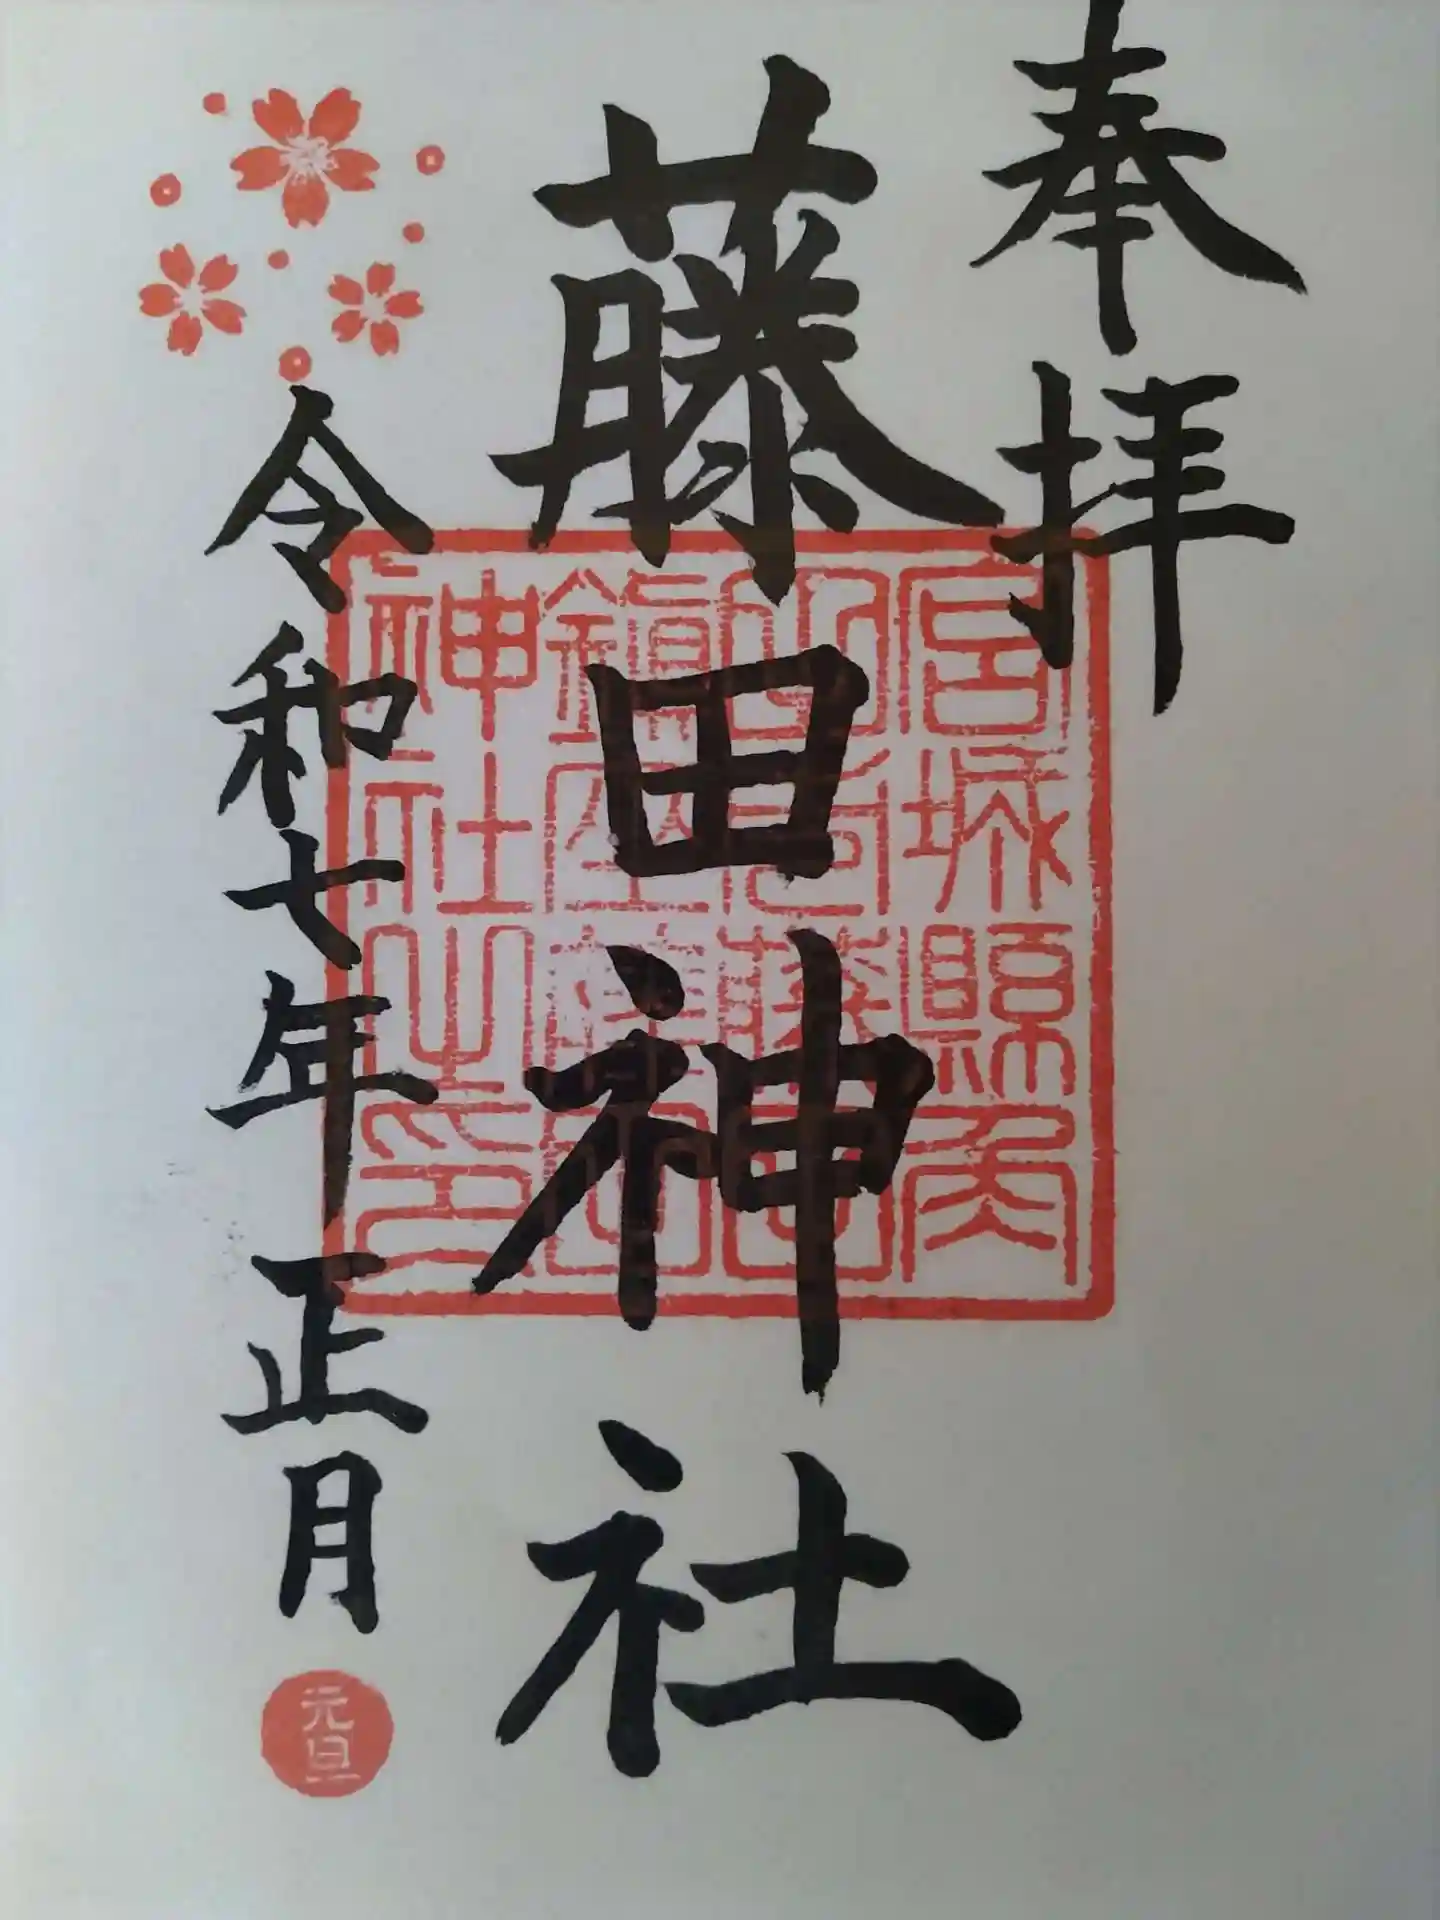 奉拝
藤田神社
令和七年正月
元旦
宮城縣内
藤田
鎮座
神社之印